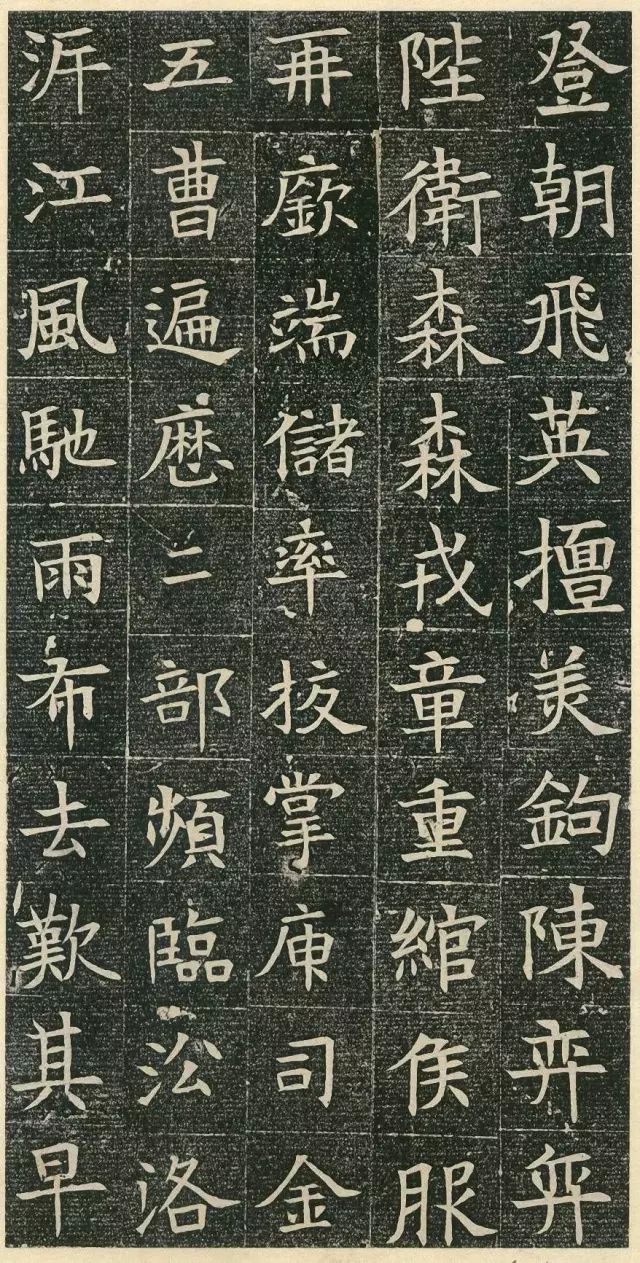 登朝飛英擅美鉤陳弈弈
陛衛森森戎章重綰侯服
再廞端儲率抜掌庾司金
五曹遍歷二部頻臨沿洛
泝江風馳雨布去歎其早